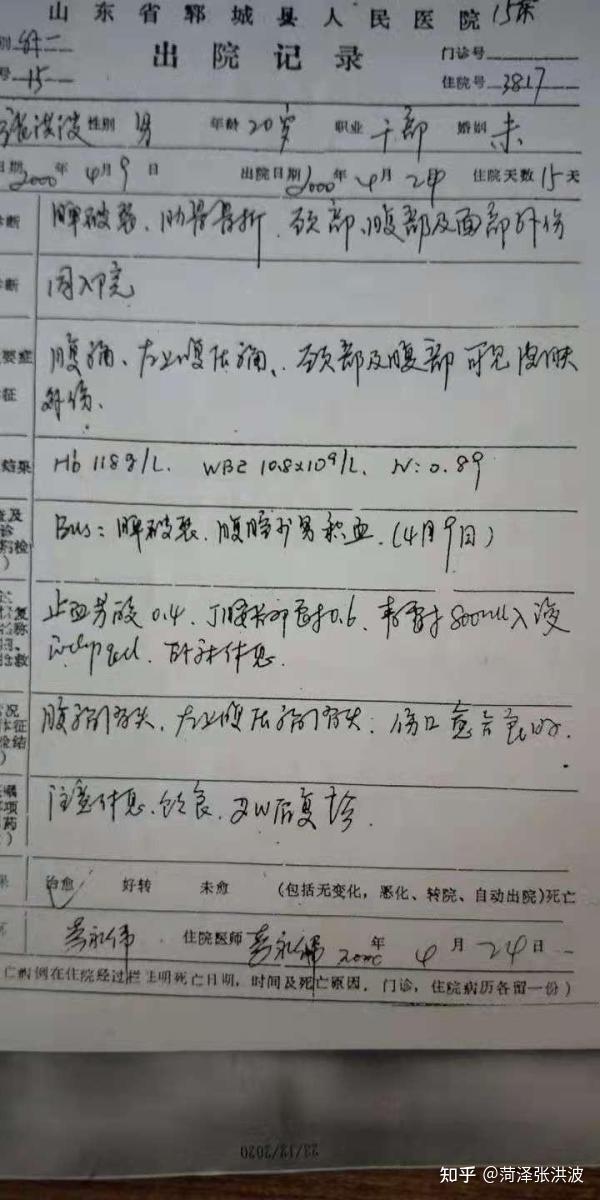 山东省郓城县人民医院 15床
别 外二 出院记录 门诊号
号 15 住院号 3817
张洪波 性别 男 年龄 20岁 职业 干部 婚姻 未
日期 2000年4月9日 出院日期 2000年4月24 住院天数15天
诊断 脾破裂、肋骨骨折、颈部、腹部及面部外伤
诊断 同入院
要症 腹痛、左上腹压痛、颈部及腹部可见皮肤
征 外伤、
结果 Hb 118g/L. WBC 10.8x10^9/L. N:0.89
查及
诊
药检
)
Bus: 脾破裂、腹腔少量积血.(4月9日)
止血芳酸 0.4、丁胺卡那霉素0.6、青霉素800万u入液
ivdrip qd、卧床休息.
复
称
间、
急救
情况 腹痛消失、左上腹压痛消失; 伤口愈合良好.
体征
检结
)
医嘱 注意休息、饮食、2W后复诊.
事项
药
)
果 治愈 好转 未愈 (包括无变化,恶化、转院、自动出院)死亡
吴永伟 住院医师 吴永伟 2000年4月24日
亡病例在住院经过栏注明死亡日期,时间及死亡原因.门诊,住院病历各留一份)
23/12/2020
知乎 @菏泽张洪波